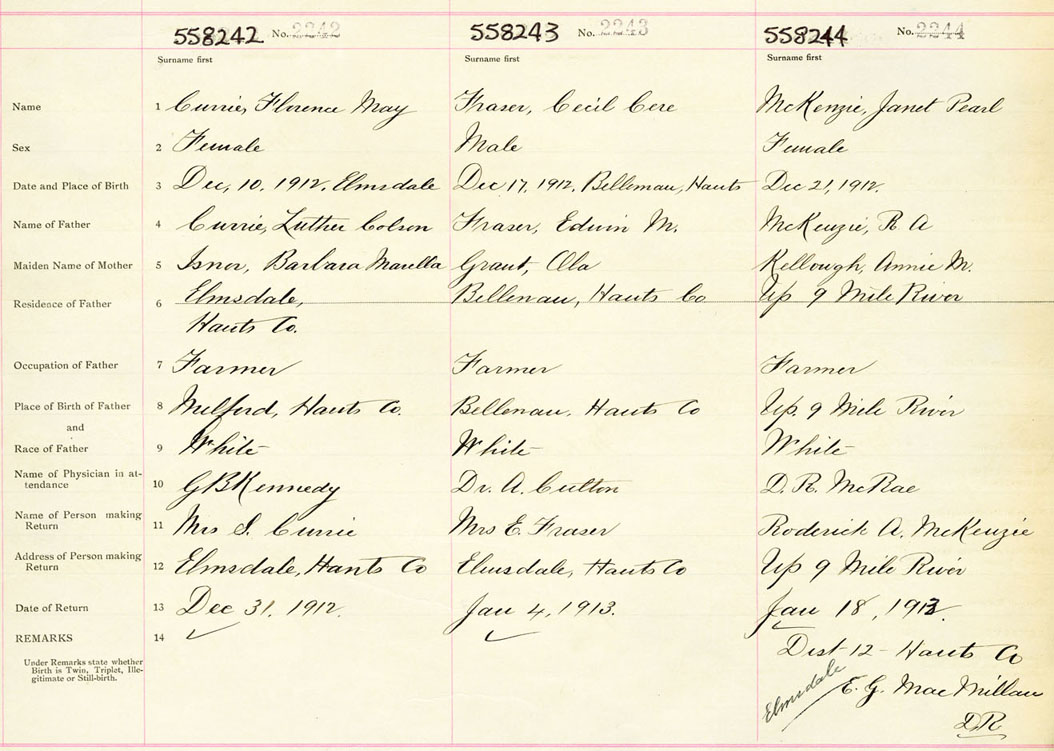 558242 No. 2242 558243 No. 2243 558244 No. 2244
Surname first Surname first Surname first
Name 1 Currie, Florence May Fraser, Cecil Cere McKenzie, Janet Pearl
Sex 2 Female Male Female
Date and Place of Birth 3 Dec, 10, 1912, Elmsdale Dec 17, 1912, Bellenau, Hants Dec 21, 1912.
Name of Father 4 Currie, Luther Colson Fraser, Edwin M. McKenzie, R A
Maiden Name of Mother 5 Isnor, Barbara Marella Grant, Olla Kellough, Annie M.
Residence of Father 6 Elmsdale, Bellenau, Hants Co Up 9 Mile River
Hants Co.
Occupation of Father 7 Farmer Farmer Farmer
Place of Birth of Father 8 Milford, Hants Co. Bellenau, Hants Co Up. 9 Mile River
and
Race of Father 9 White White White
Name of Physician in at-
tendance 10 GBKennedy Dr. A. Culton D. R. McRae
Name of Person making
Return 11 Mrs Currie Mrs E. Fraser Roderick A. McKenzie
Address of Person making
Return 12 Elmsdale, Hants Co Elmsdale, Hants Co Up 9 Mile River
Date of Return 13 Dec 31, 1912. Jan 4, 1913. Jan 18, 1913.
REMARKS 14 ✓ ✓
Under Remarks state whether
Birth is Twin, Triplet, Ille-
gitimate or Still-birth.
Dist 12 - Hants Co
Elmsdale E. G. MacMillan
D.R